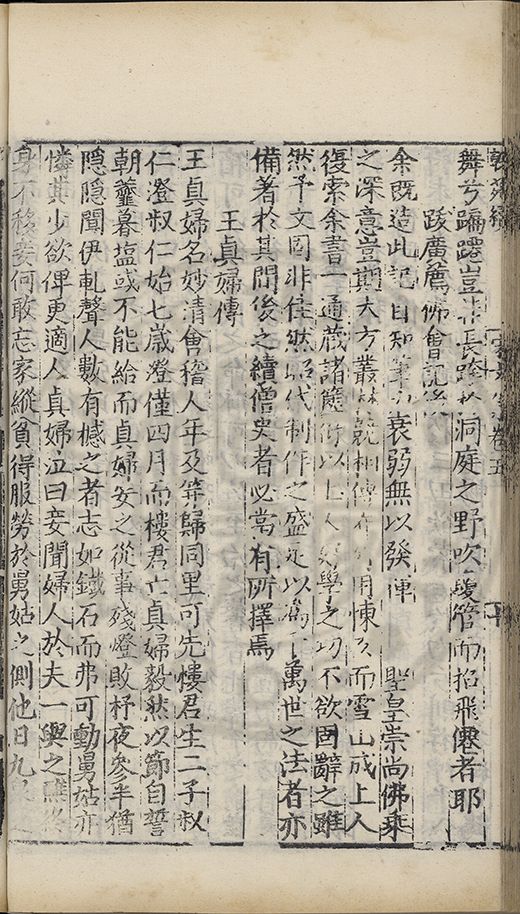 舞兮蹁躚豈非長 洞庭之野吹瓊管而招飛僊者耶
跋廣薦佛會記後
余既造此記自知筆力衰弱無以發俾 聖皇崇尚佛乘
之深意豈期大方叢林競相傳 用悚又而雪山成上人
復索余書一通蔵諸 以上人 學之功不欲固辭之雖
然予文固非佳然昭代制作之盛足以為千萬世之法者亦
備著於其間後之續僧史者必當有所擇焉
王貞婦傳
王貞婦名妙清會稽人年及筓歸同里可先樓君生二子叔
仁澄叔仁始七嵗澄僅四月而樓君亡貞婦毅然以節自誓
朝虀暮塩或不能給而貞婦安之從事殘燈敗杼夜參半猶
隠隠聞伊軋聲人數有撼之者志如鐵石而弗可動舅姑亦
憐其少欲俾更適人貞婦泣曰妾聞婦人於夫一與之醮終
身不移妾何敢忘家縱貧得服勞於舅姑之側他日九
卷五